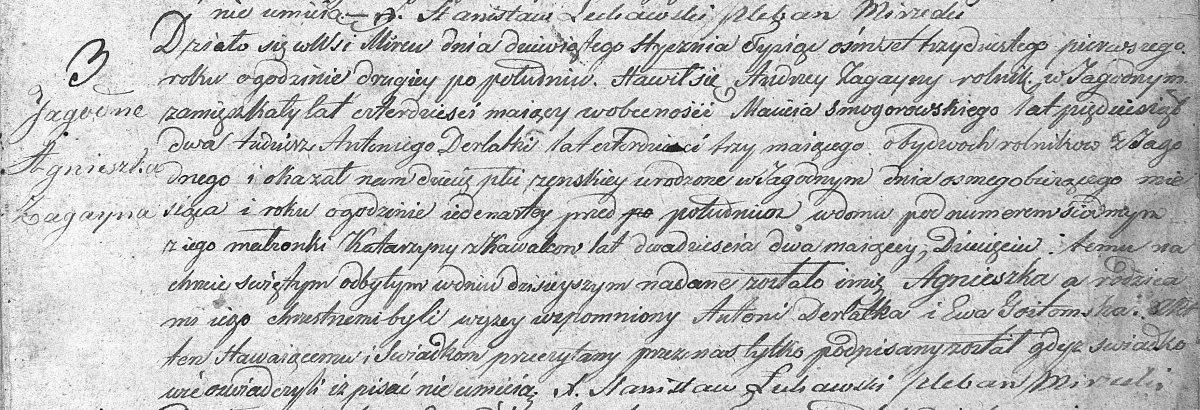 nie umieią. X. Stanisław Luhawski Pleban Mirzecki
3
Jagodne
Agnieszka
Zagayna
Działo się w Wsi Mircu dnia dziewiątego Stycznia Tysiąc ośmset trzydziestego pierwszego
roku o godzinie drugiey po południu. Stawił się Andrzey Zagayny rolnik w Jagodnym
zamięszkały lat czterdzieści maiący w obecności Macieia Smogorowskiego lat pięćdziesiąt
dwa tudzież Antoniego Derlatki lat czterdzieści trzy maiącego obydwoch rolnikow z Jago
dnego i okazał nam dziecię płci żenskiey urodzone w Jagodnym dnia osmego bieżącego mie
siąca i roku o godzinie iedenastey przed po południem w domu pod numerem siodmym
z iego małżonki Katarzyny z Kawalcow lat dwadzieścia dwa maiącey, Dziecięciu temu na
chrzcie świętym odbytym w dniu dzisieyszym nadane zostało imię Agnieszka a rodzica
mi iego chrzestnemi byli wyżey wspomniony Antoni Derlatka i Ewa Akt
ten Stawaiącemu i Swiadkom przeczytany przez nas tylko podpisany został gdyż swiadko
wie oswiadczyli iż pisać nie umieią X. Stanisław Luhawski Pleban Mirzecki